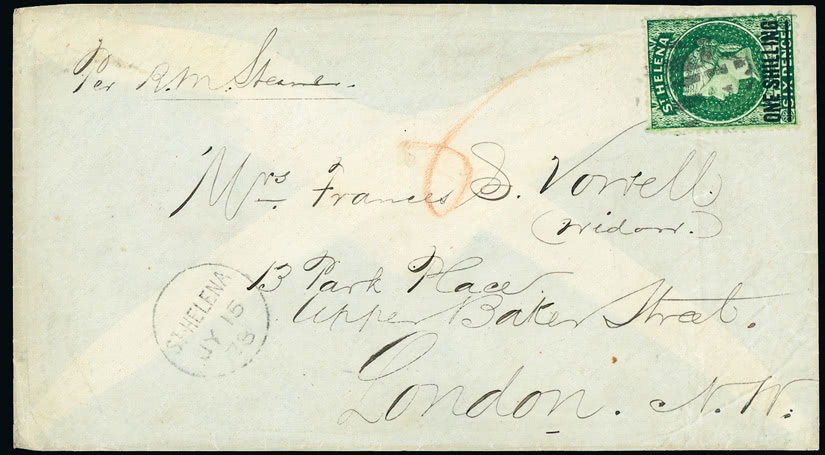 Per R.M. Steamer.
ST. HELENA
ONE SHILLING
SIX PENCE
6
Mrs Frances S. Vowell.
(widow.)
13 Park Place.
Upper Baker Street.
London. N.W.
ST. HELENA
JY 15
78